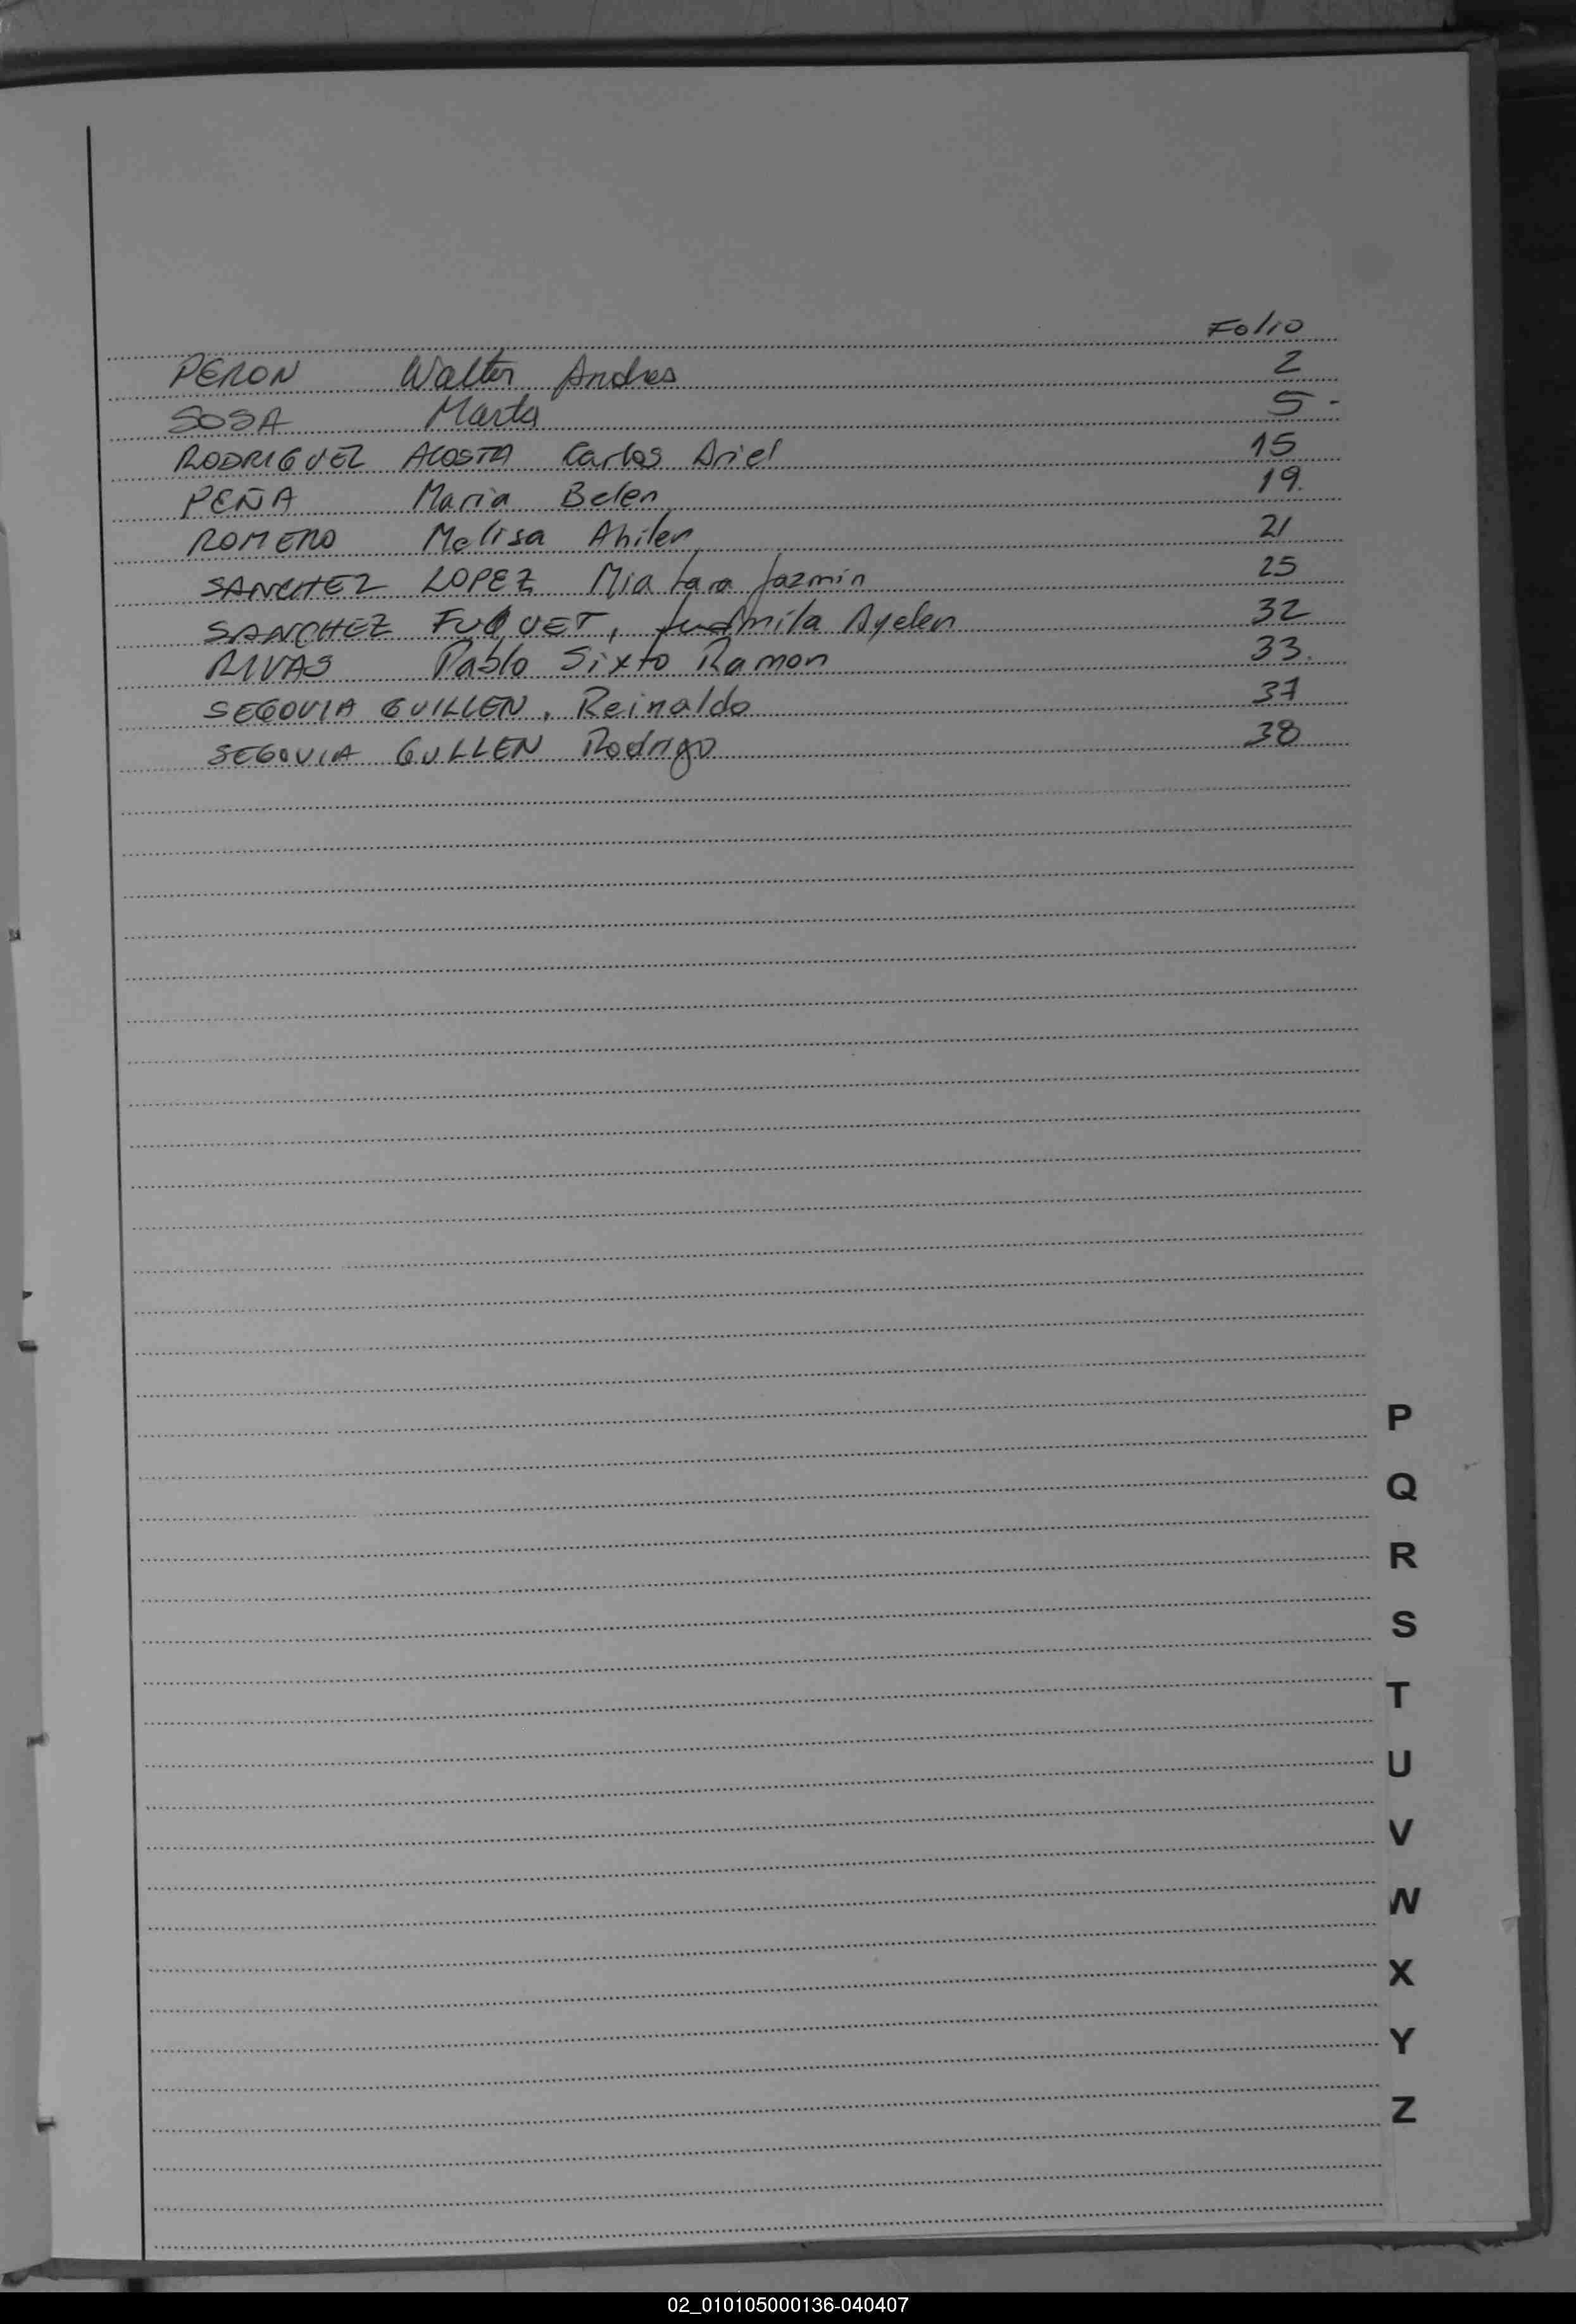 Folio
PERON Walter Andres 2
SOSA Marta 5 -
RODRIGUEZ ACOSTA Carlos Ariel 15
PEÑA Maria Belen 19.
ROMERO Melisa Ahilen 21
SANCHEZ LOPEZ Mia Jazmin 25
SANCHEZ FUQUET, Ludmila Ayelen 32
RIVAS Pablo Sixto Ramon 33.
SEGOVIA GUILLEN, Reinaldo 37
SEGOVIA GULLEN Rodrigo 38
P
Q
R
S
T
U
V
W
X
Y
Z
02_010105000136-040407